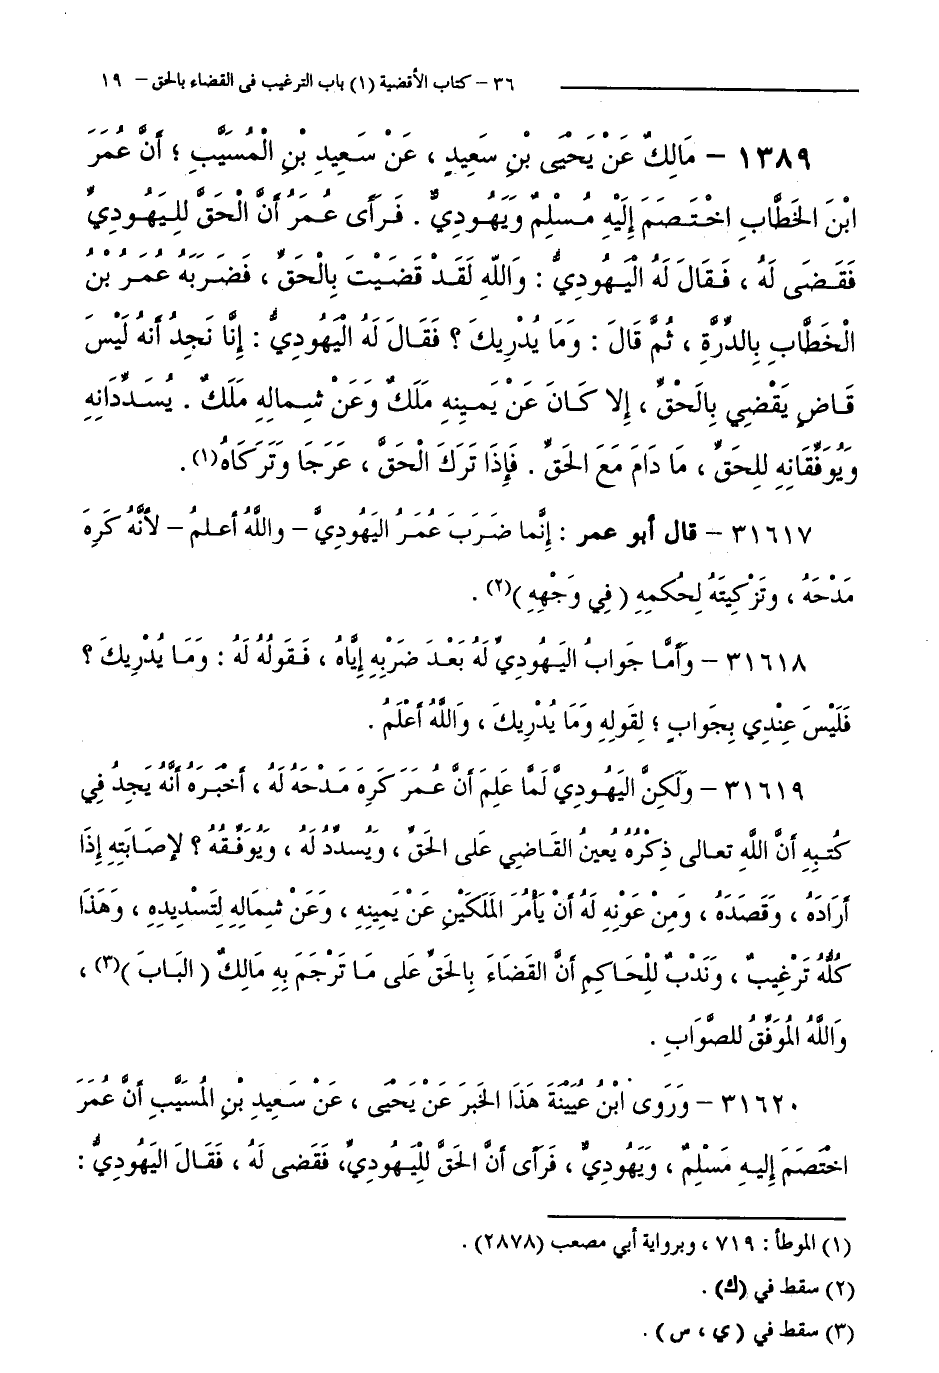 ٣٦ – كتاب الأقضية (١) باب الترغيب فى القضاء بالحق – ١٩
١٣٨٩ – مَالِكٌ عَنْ يَحْيَى بْنِ سَعِيدٍ ، عَنْ سَعِيدِ بْنِ الْمُسَيَّبِ ؛ أَنَّ عُمَرَ
ابْنَ الخَطَّابِ اخْتَصَمَ إِلَيْهِ مُسْلِمٌ وَيَهُودِيٌّ . فَرَأَى عُمَرُ أَنَّ الْحَقَّ لِليَهُودِيِّ
فَقَضَى لَهُ ، فَقَالَ لَهُ الْيَهُودِيُّ : وَاللَّهِ لَقَدْ قَضَيْتَ بِالْحَقِّ ، فَضَرَبَهُ عُمَرُ بْنُ
الْخَطَّابِ بِالدِّرَّةِ ، ثُمَّ قَالَ : وَمَا يُدْرِيكَ ؟ فَقَالَ لَهُ الْيَهُودِيُّ : إِنَّا نَجِدُ أَنهُ لَيْسَ
قَاضٍ يَقْضِي بِالَحْقِّ ، إِلا كَانَ عَنْ يَمِينِهِ مَلَكٌ وَعَنْ شِمالِهِ مَلَكٌ . يُسَدِّدَانِهِ
وَيُوَفِّقَانِهِ لِلحَقِّ ، مَا دَامَ مَعَ الحَقِّ . فَإِذَا تَرَكَ الْحَقَّ ، عَرَجَا وَتَرَكَاهُ(١) .
٣١٦١٧ – قال أبو عمر : إِنَّما ضَرَبَ عُمَرُ اليَهُودِيَّ – واللَّهُ أعلمُ – لأنَّهُ كَرِهَ
مَدْحَهُ ، وتَزْكِيَتَهُ لِحُكمِهِ ( فِي وَجْهِهِ )(٢) .
٣١٦١٨ – وأمَّا جَوابُ اليَهُودِيِّ لَهُ بَعْدَ ضَرْبِهِ إِيَّاهُ ، فَقَولُهُ لَهُ : وَمَا يُدْرِيكَ ؟
فَلَيْسَ عِنْدِي بِجَوابٍ ؛ لِقَولِهِ وَمَا يُدْرِيكَ ، وَاللَّهُ أَعْلَمُ .
٣١٦١٩ – ولَكِنَّ اليَهُودِيَّ لَمَّا عَلِمَ أَنَّ عُمَرَ كَرِهَ مَدْحَهُ لَهُ ، أخْبَرَهُ أنَّهُ يَجِدُ فِي
كُتُبِهِ أَنَّ اللَّهِ تعالى ذِكْرُهُ يُعينُ القَاضِي عَلى الحَقِّ ، ويُسَدِّدُ لَهُ ، ويُوَفِّقُهُ ؟ لإصَابَتِهِ إِذَا
أرَادَهُ ، وقَصَدَهُ ، ومِنْ عَوْنِهِ لَهُ أَنْ يَأْمُرَ المَلَكَيْنِ عَنْ يَمِينِهِ ، وعَنْ شِمَالِهِ لِتَسْدِيدِهِ ، وهَذَا
كُلُّهُ تَرْغِيبٌ ، ونَدْبٌ لِلْحَاكِمِ أنَّ القَضَاءَ بِالحَقِّ عَلى مَا تَرْجَمَ بِهِ مَالِكٌ ( البَابَ )(٣) ،
وَاللَّهُ الْمُوَفِّقُ للصَّوَابِ .
٣١٦٢٠ – ورَوى ابْنُ عُيَيْنَةَ هَذَا الخَبَرَ عَنْ يَحْيَى ، عَنْ سَعِيدِ بْنِ الْمُسَيَّبِ أنَّ عُمَرَ
اخْتَصَمَ إِليهِ مَسْلِمٌ ، ويَهُودِيٌّ ، فَرَأى أنَّ الحَقَّ لِلْيَهُودِيِّ، فَقَضى لَهُ ، فَقَالَ اليَهُودِيُّ :
(١) الموطأ : ٧١٩ ، وبرواية أبي مصعب (٢٨٧٨) .
(٢) سقط في (ك) .
(٣) سقط في ( ي ، س ) .